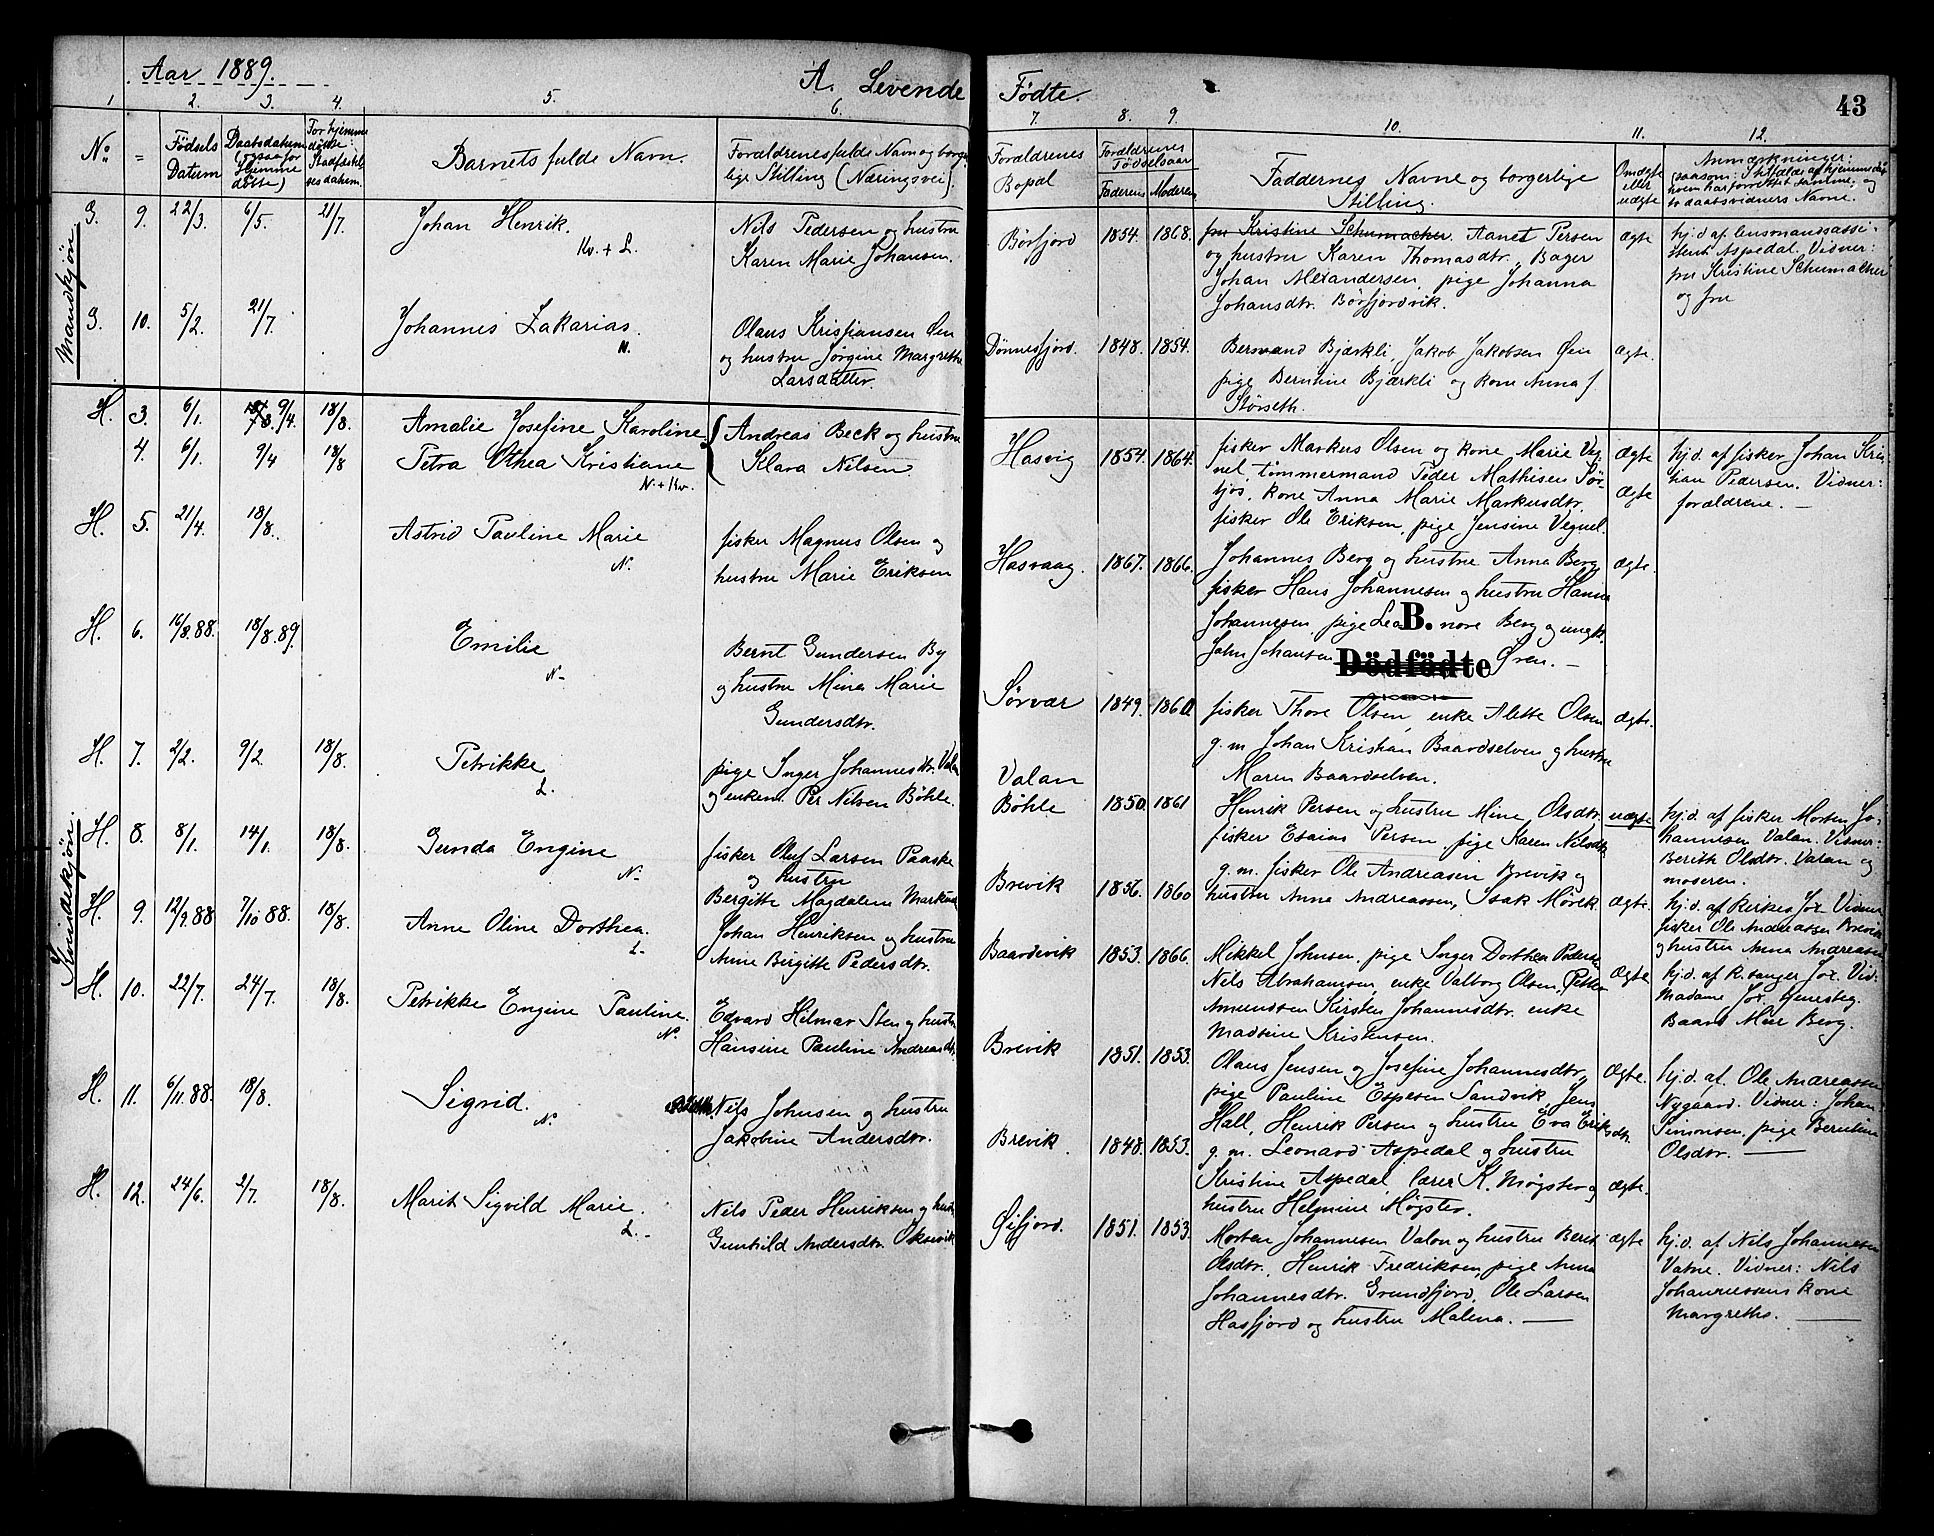 Aar 1889.
A. Levende Fødte.
43
1 2. 3. 4. 5. 6. 7. 8. 9. 10. 11. 12.
No = Fødsels Datum
Daabsdatum (ogsaa for Hjemmedøbte)
For hjemmedøbte: Stadfæstelsesdatum.
Barnets fulde Navn.
Forældrenes fulde Navn og borgerlige Stilling (Næringsvei).
Forældrenes Bopæl
Forældrenes Fødselsaar
Faderens Moderens
Faddernes Navne og borgerlige Stilling.
Om ægte eller uægte
Anmærkninger:
to daabsvidners Navne.
Mandkjøn.
G. 9. 22/3. 6/5. 21/7. Johan Henrik.
Kv. + L.
Nils Pedersen og hustru
Karen Marie Johansen.
Børfjord 1854. 1868.
fru Kristine Schumacher. Aanet Persen
og hustru Karen Thomasdtr., Bager
Johan Alexandersen, pige Johanna
Johansdtr. Børfjordvik.
ægte
hj.d. af lensmandsassi-
stent Aspedal. Vidner:
fru Kristine Schumacher
og fru
G. 10. 5/2. 21/7. Johannes Zakarias.
N.
Olaus Kristiansen Øen
og hustru Jørgine Margrethe
Larsdatter.
Dønnesfjord. 1848. 1854.
Bersvend Bjærkli, Jakob Jakobsen Øen
pige Berntine Bjærkli og kone Anna f.
Størseth.
Ægte.
Kvindekjøn.
H. 3. 6/1. 9/4. 18/8. Amalie Josefine Karoline
4. 6/1. 9/4 18/8 Petra Othea Kristiane
N. + Kv.
Andreas Beck og hustru
Klara Nilsen
Hasvig 1854. 1864.
fisker Markus Olsen og kone Marie Veg-
nel, tømmermand Peder Mathisen
kone Anna Marie Markusdtr.
fisker Ole Eriksen, pige Jensine Vegnel.
ægte
ægte
hj.d. af fisker Johan Kris-
tian Pedersen. Vidner:
forældrene. —
H. 5. 21/4. 18/8. Astrid Pauline Marie
N.
fisker Magnus Olsen og
hustru Marie Eriksen
Hasvaag. 1867. 1866.
Johannes Berg og hustru Anna Berg
fisker Hans Johannesen og hustru Hanna
Johannesen, pige Leonore Berg og ungk.
John Johansen Gren. —
ægte.
B.
Dödfödte
H. 6. 16/8.88. 18/8.89. Emilie
N.
Bernt Gundersen By
og hustru Mina Marie
Gundersdtr.
Sørvær 1849. 1860
fisker Thore Olsen, enke Alette Olsen
g. m. Johan Kristian Baardselven og hustru
Maren Baardselven.
ægte.
H. 7. 2/2. 9/2. 18/8. Petrikke
L.
pige Inger Johannesdtr. Valan
og enkem. Per Nilsen Bøhle.
Valan
Bøhle 1850. 1861
Henrik Persen og hustru Mine Olsdtr.
fisker Esaias Persen, pige Karen Nilsdtr.
uægte
hj.d. af fisker Morten Jo-
hannesen Valan. Vidner:
Berith Olsdtr. Valan og
moderen.
H. 8. 8/1. 14/1. 18/8. Gunda Engine
N.
fisker Oluf Larsen Paaske
og hustru
Bergitte Magdalena Markus
Brevik 1856. 1860
g. m. fisker Ole Andreasen Brevik og
hustru Anna Andreassen, Isak Mørek.
ægte.
hj.d. af Kirkes. Jox. Vidner:
fisker Ole Andreassen Brevik
og hustru Anna Andreasen
H. 9. 12/9.88 7/10 88. 18/8. Anne Oline Dorthea.
L.
Johan Henriksen og hustru
Anne Birgitte Pedersdtr.
Baardvik 1853. 1866.
Mikkel Johnsen, pige Inger Dorthea Pedersdtr.
Nils Abrahamsen, enke Valborg Olsen, Petter
Amundsen Kirsten Johannesdtr. enke
Madsine Kristensen.
ægte
hj.d. af K.sanger Jox. Vid-
Madame Jox.
Baard Berg.
H. 10. 22/7. 24/7. 18/8. Petrikke Engine Pauline.
N.
Edvard Hilmar Sten og hustru
Hansine Pauline Andreasdtr.
Brevik 1851. 1853.
Olaus Jensen og Josefine Johannesdtr.,
pige Pauline Espesen Sandvik, Jens
Hall, Henrik Persen og hustru Eva Eriksdtr.
ægte.
hj.d. af. Ole Andreassen
Nygaard. Vidner: Johan
Simonsen, pige Berntine
Olsdtr. —
H. 11. 6/11.88. 18/8. Sigrid.
N.
Nils Johnsen og hustru
Jakobine Andersdtr.
Brevik. 1848. 1853.
g. m. Leonard Aspedal og hustru
Kristine Aspedal, lærer K. Møgster og
hustru Helmine Møgster.
ægte.
H. 12. 24/6. 2/7. 18/8. Marit Sigvild Marie.
L.
Nils Peder Henriksen og hustr.
Gunhild Andersdtr. Oksevik
Øifjord. 1851. 1853.
Morten Johannesen Valan og hustru Berit
Olsdtr., Henrik Fredriksen, pige Anna
Johannesdtr. Grundfjord, Ole Larsen
Hasfjord og hustru Malena. —
ægte
hj.d. af Nils Johannesen
Vatne. Vidner: Nils
Johannessens kone
Margrethe. —